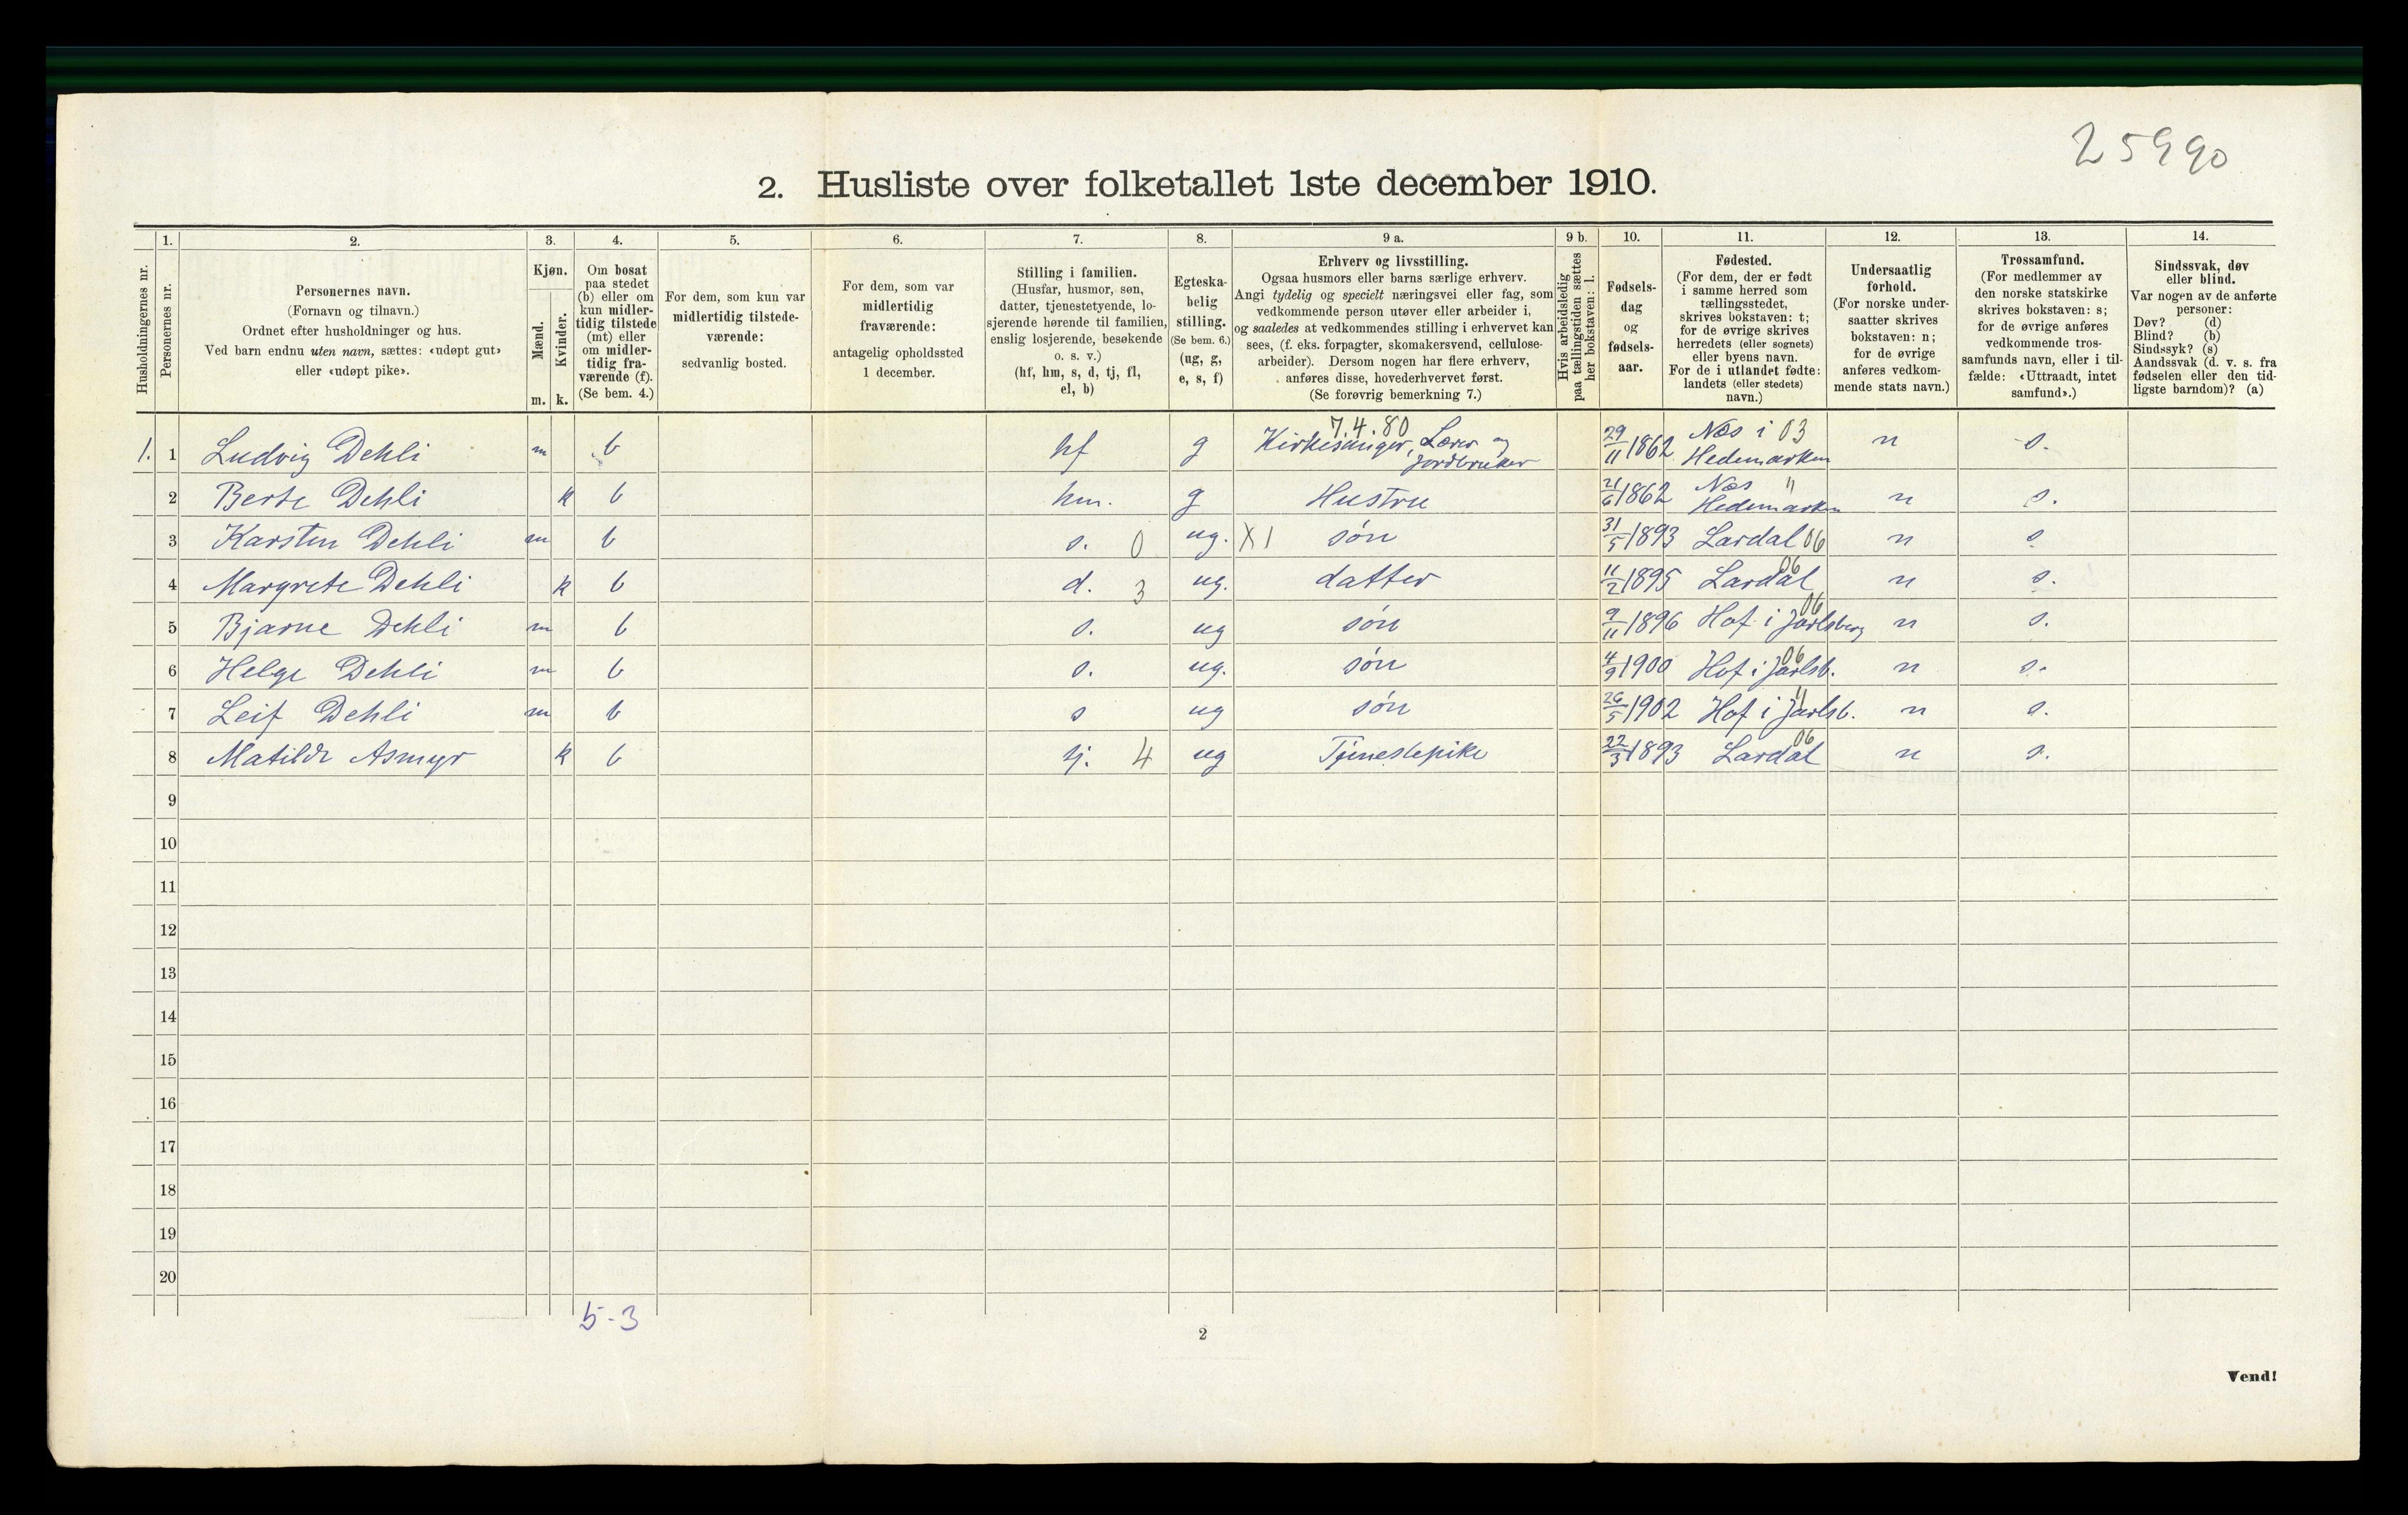 25990
2. Husliste over folketallet 1ste december 1910.
Husholdningernes nr.
1.
Personernes nr.
2.
Personernes navn.
(Fornavn og tilnavn.)
Ordnet efter husholdninger og hus.
Ved barn endnu uten navn, sættes: «udøpt gut»
eller «udøpt pike».
3.
Kjøn.
Mænd.
Kvinder.
m. k.
4.
Om bosat
paa stedet
(b) eller om
kun midler-
tidig tilstede
(mt) eller
om midler-
tidig fra-
værende (f).
(Se bem. 4.)
5.
For dem, som kun var
midlertidig tilstede-
værende:
sedvanlig bosted.
6.
For dem, som var
midlertidig
fraværende:
antagelig opholdssted
1 december.
7.
Stilling i familien.
(Husfar, husmor, søn,
datter, tjenestetyende, lo-
sjerende hørende til familien,
enslig losjerende, besøkende
o. s. v.)
(hf, hm, s, d, tj, fl,
el, b)
8.
Egteska-
belig
stilling.
(Se bem. 6.)
(ug, g,
e, s, f)
9 a.
Erhverv og livsstilling.
Ogsaa husmors eller barns særlige erhverv.
Angi tydelig og specielt næringsvei eller fag, som
vedkommende person utøver eller arbeider i,
og saaledes at vedkommendes stilling i erhvervet kan
sees, (f. eks. forpagter, skomakersvend, cellulose-
arbeider). Dersom nogen har flere erhverv,
anføres disse, hovederhvervet først.
(Se forøvrig bemerkning 7.)
9 b.
Hvis arbeidsledig
paa tællingstiden sættes
her bokstaven: l.
10.
Fødsels-
dag
og
fødsels-
aar.
11.
Fødested.
(For dem, der er født
i samme herred som
tællingsstedet,
skrives bokstaven: t;
for de øvrige skrives
herredets (eller sognets)
eller byens navn.
For de i utlandet fødte:
landets (eller stedets)
navn.)
12.
Undersaatlig
forhold.
(For norske under-
saatter skrives
bokstaven: n;
for de øvrige
anføres vedkom-
mende stats navn.)
13.
Trossamfund.
(For medlemmer av
den norske statskirke
skrives bokstaven: s;
for de øvrige anføres
vedkommende tros-
samfunds navn, eller i til-
fælde: «Uttraadt, intet
samfund».)
14.
Sindssvak, døv
eller blind.
Var nogen av de anførte
personer:
Døv? (d)
Blind? (b)
Sindssyk? (s)
Aandssvak (d. v. s. fra
fødselen eller den tid-
ligste barndom)? (a)
7.4.80
1. 1 Ludvig Dehli m b hf g Kirkesanger, Lærer og Jordbruker 29/11 1862 Næs i 03 Hedemarken n s.
2 Berte Dehli k b hm. g Hustru 21/6 1862 Næs " Hedemarken n s.
3 Karsten Dehli m b s. 0 ug. X1 søn 31/5 1893 Lardal 06 n s
4 Margrete Dehli k b d. 3 ug. datter 11/2 1895 Lardal 06 n s.
5 Bjarne Dehli m b s. ug søn 9/11 1896 Hof i Jarlsberg 06 n s.
6 Helge Dehli m b s. ug. søn 4/9 1900 Hof i Jarlsb. 06 n s.
7 Leif Dehli m b s ug søn 26/5 1902 Hof i Jarlsb. " n s.
8 Matilde Asmyr k b tj. 4 ug Tjenestepike 22/3 1893 Lardal 06 n s.
9
10
11
12
13
14
15
16
17
18
19
20
5-3
2
Vend!